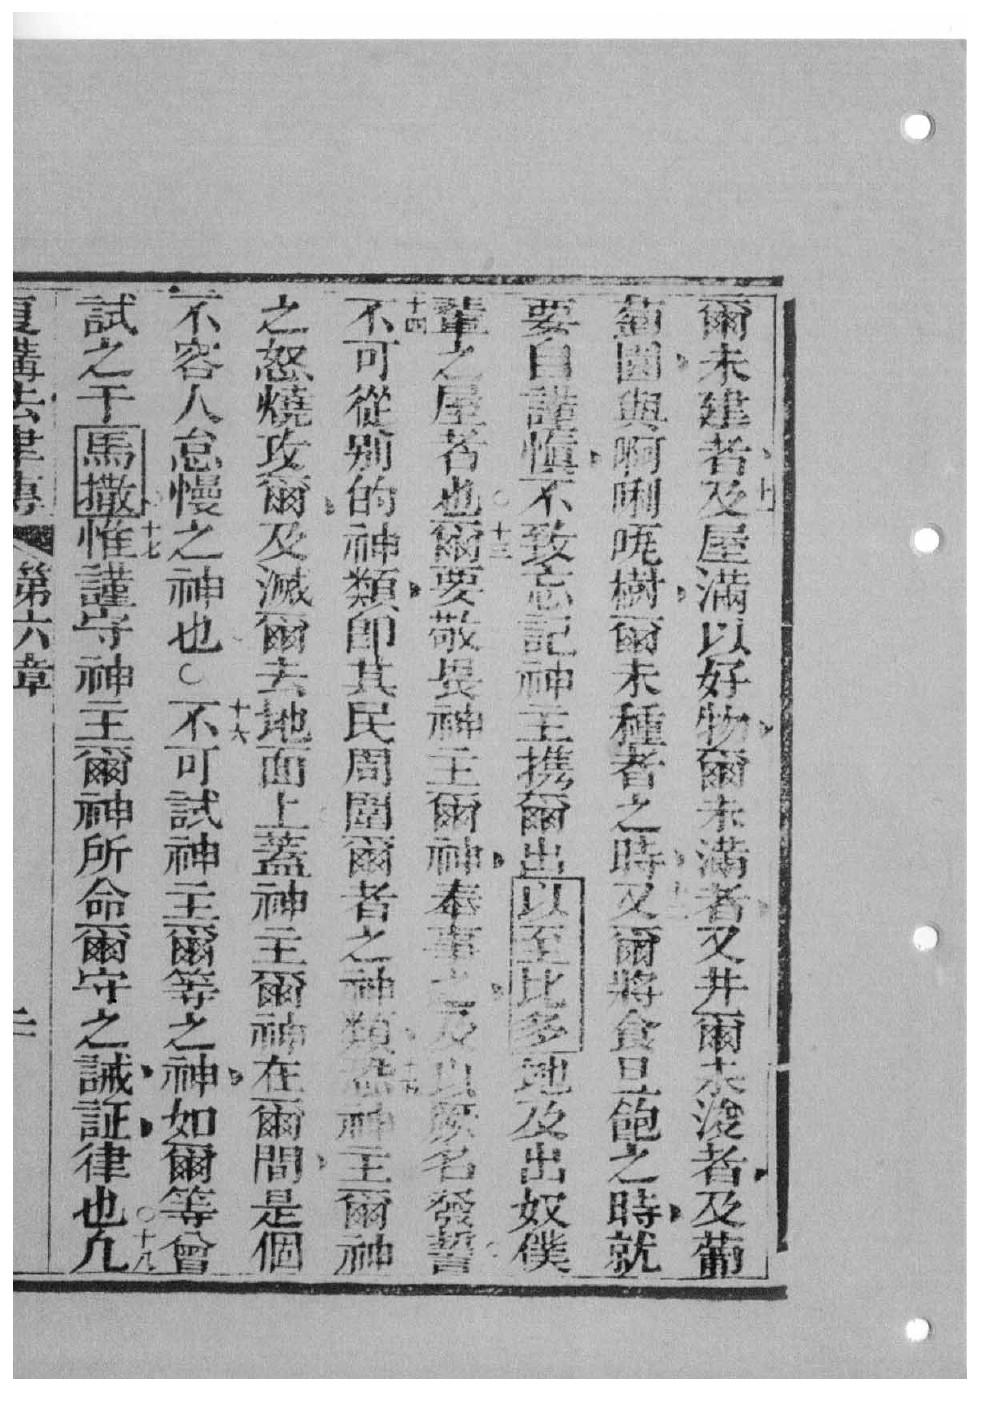 爾未建者及屋滿以好物爾未滿者又井爾未浚者及葡
十一
萄園與啊唎𠵽樹爾未種者之時又爾將食且飽之時就
十二
要自謹慎不致忘記神主携爾出以至比多地及出奴僕
輩之屋者也○爾要敬畏神主爾神奉事之及以厥名發誓
十三
不可從別的神類即其民周圍爾者之神類恐神主爾神
十四 十五
之怒燒攻爾及滅爾去地面上蓋神主爾神在爾間是個
不容人怠慢之神也○不可試神主爾等之神如爾等曾
十六
試之于馬撒○惟謹守神主爾神所命爾守之誡証律也○凡
十七 十八
復講法律傳 第六章 二